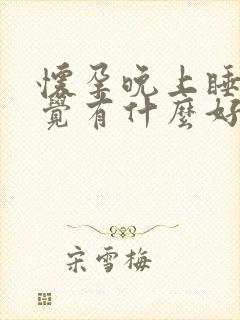 懷孕晚上睡
覺有什麼好
宋雪梅